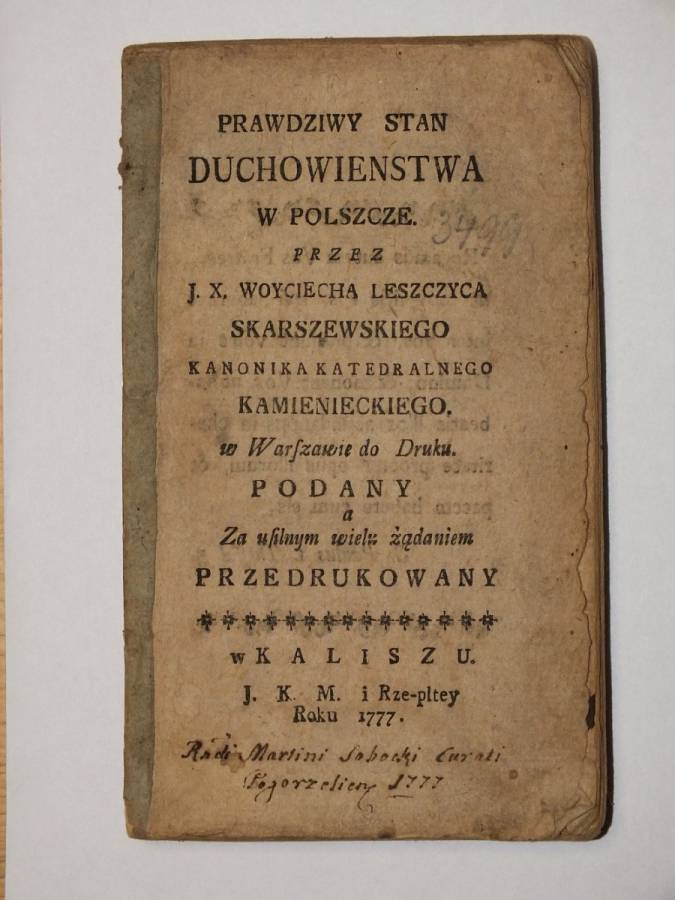 PRAWDZIWY STAN
DUCHOWIENSTWA
W POLSZCZE.
PRZEZ
J. X. WOYCIECHA LESZCZYCA
SKARSZEWSKIEGO
KANONIKA KATEDRALNEGO
KAMIENIECKIEGO.
w Warſzawie do Druku.
PODANY
a
Za uſilnym wielu żądaniem
PRZEDRUKOWANY
w KALISZU.
J. K. M. i Rze-pltey
Roku 1777.
3499
Radi Martini Sobocki Curati
1777